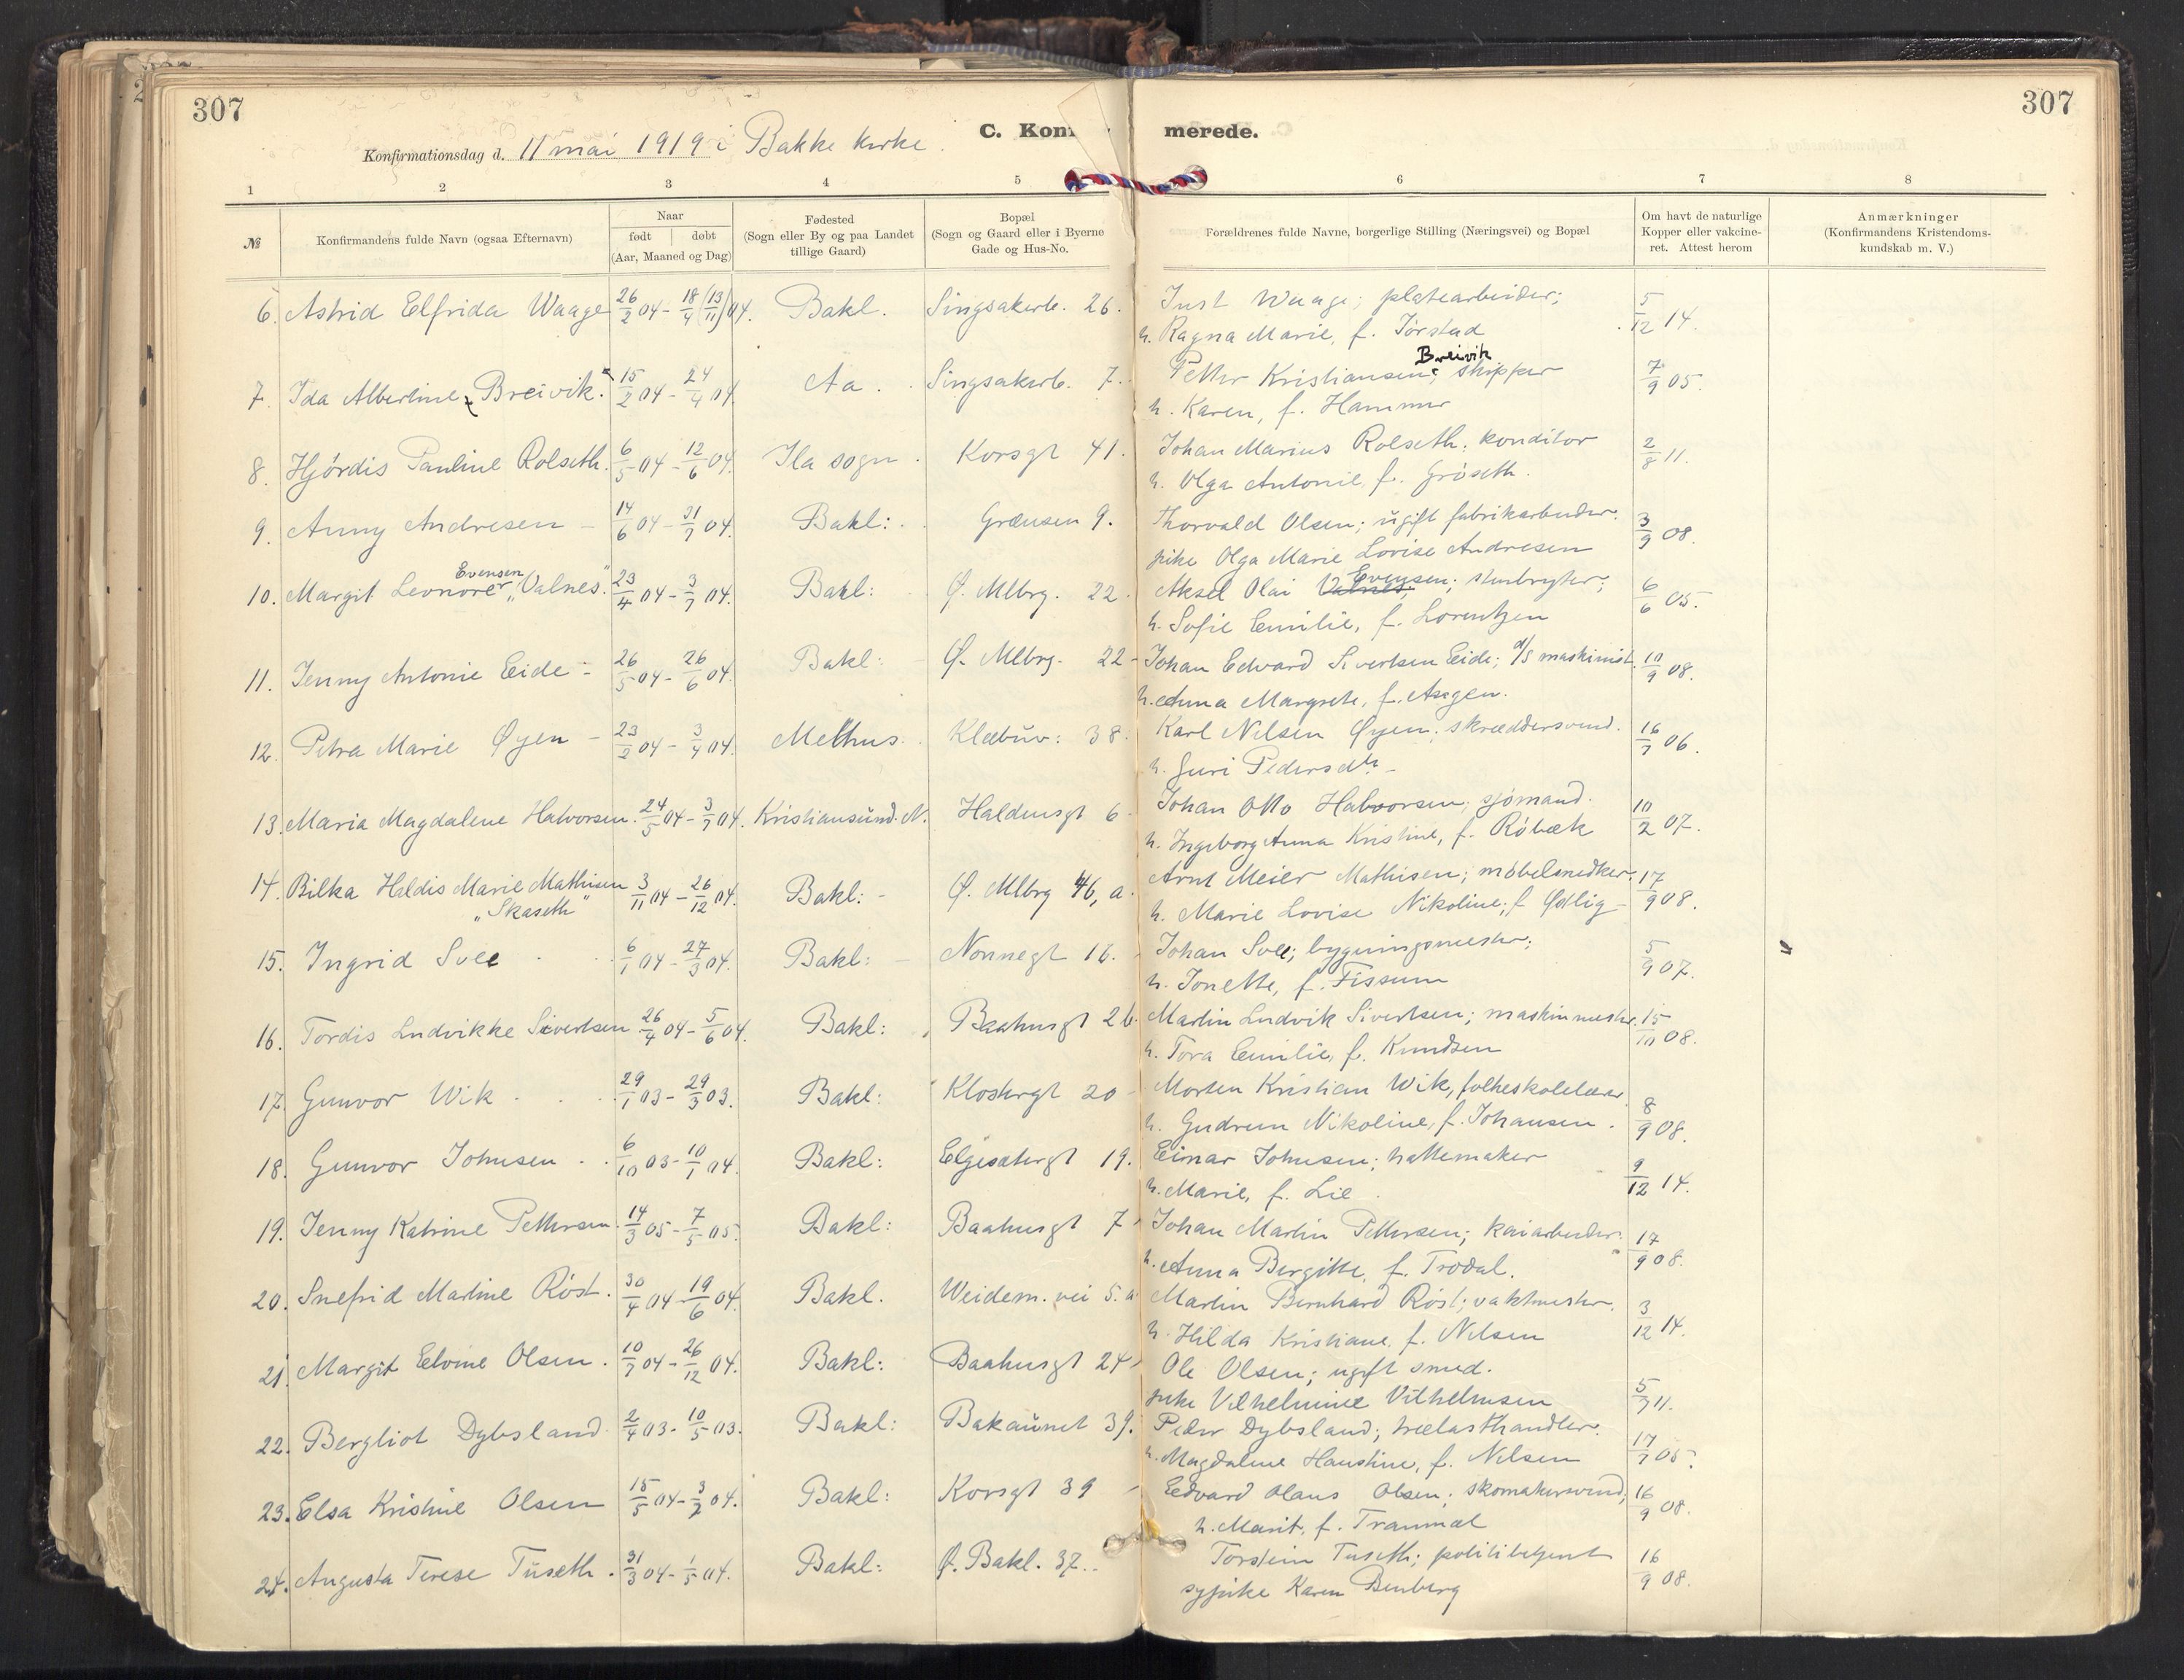 307
307
C. Konfirmerede.
Konfirmationsdag d. 11 mai 1919 i Bakke kirke.
1 2 3 4 5 6 7 8
№
Konfirmandens fulde Navn (ogsaa Efternavn)
Naar
født døbt
(Aar, Maaned og Dag)
Fødested
(Sogn eller By og paa Landet
tillige Gaard)
Bopæl
(Sogn og Gaard eller i Byerne
Gade og Hus-No.
Forældrenes fulde Navne, borgerlige Stilling (Næringsvei) og Bopæl
Om havt de naturlige
Kopper eller vakcine-
ret. Attest herom
Anmærkninger
(Konfirmandens Kristendoms-
kundskab m. V.)
6. Astrid Elfrida Waage 26/2 04 - 18/9 (13/11) 04. Bakl. Singsakerb. 26. Just Waage; platearbeider; 5/12 14.
h. Ragna Marie, f. Jørstad
7. Ida Albertine Breivik. 15/2 04 - 24/4 04. Aa. Singsakerb. 7. Petter Kristiansen Breivik; skipper 7/9 05.
h. Karen, f. Hammer
8. Hjørdis Pauline Rolseth. 6/5 04 - 12/6 04. Ila sogn. Korsgt 41. Johan Marius Rolseth; konditor 2/8 11.
h. Olga Antonie, f. Grøseth.
9. Anny Andresen - 14/6 04 - 31/7 04. Bakl: Grænsen 9. Thorvald Olsen; ugift fabrikarbeider. 3/9 08.
pike Olga Marie Lovise Andresen
10. Margit Leonore Evensen "Valnes". 23/4 04 - 3/7 04. Bakl: Ø. Mlbrg. 22. Aksel Olai Valnes Evensen; stenbryter; 6/6 05.
h. Sofie Emilie, f. Lorentzen
11. Jenny Antonie Eide - 26/5 04 - 26/6 04. Bakl: Ø. Mlbrg. 22 - Johan Edvard Sivertsen Eide; d/s maskinist. 10/9 08.
h. Anna Margrete, f. Aagen.
12. Petra Marie Øyen - 23/2 04 - 3/4 04. Melhus. Klæbuv: 38. Karl Nilsen Øyen; skræddersvend. 16/7 06.
h. Guri Pedersdtr -
13. Maria Magdalene Halvorsen. 24/5 04 - 3/7 04. Kristiansund. N. Haldensgt 6 Johan Otto Halvorsen; sjømand. 10/2 07.
h. Ingeborg Anna Kristine, f. Røbæk
14. Bilka Haldis Marie Mathisen 3/11 04 - 26/12 04. Bakl: - Ø. Mlbrg 46, a. Arnt Meier Mathisen; møbelsnedker. 17/9 08.
"Skaseth" h. Marie Lovise Nikoline, f. Ødlig -
15. Ingrid Svee 6/1 04 - 27/3 04. Bakl: - Nonnegt 16. Johan Svee; bygningsmester; 5/9 07.
h. Jonette, f. Fissum
16. Tordis Ludvikke Sivertsen 26/4 04 - 5/6 04. Bakl: Baahusgt 26. Martin Ludvik Sivertsen; maskinmester. 15/10 08.
h. Tora Emilie, f. Knudsen
17. Gunvor Wik 29/1 03 - 29/3 03. Bakl: Klostergt 20 - Morten Kristian Wik, folkeskolelærer. 8/9 08.
h. Gudrun Nikoline, f. Johansen.
18. Gunvor Johnsen 6/10 03 - 10/1 04. Bakl: Elgesætergt 19. Einar Johnsen; hattemaker 9/12 14.
h. Marie, f. Lie.
19. Jenny Katrine Pettersen. 14/3 05 - 7/5 05. Bakl: Baahusgt 7 Johan Martin Pettersen; kaiarbeider. 17/9 08.
h. Anna Bergitte, f. Trodal.
20. Snefrid Martine Røst. 30/4 04 - 19/6 04. Bakl. Weidem. vei 5. a Martin Bernhard Røst; vaktmester. 3/12 14.
h. Hilda Kristiane, f. Nilsen
21. Margit Edvine Olsen. 10/7 04 - 26/12 04. Bakl: Baahusgt 24 Ole Olsen; ugift smed. 5/7 11.
pike Vilhelmine Vilhelmsen
22. Bergliot Dybsland 2/4 03 - 10/5 03. Bakl: Bakaunet 39. Peder Dybsland; trælasthandler. 17/7 05.
h. Magdalene Haustine, f. Nilsen
23. Elsa Kristine Olsen 15/5 04 - 3/7 04. Bakl: Korsgt 39 - Edvard Olaus Olsen; skomakersvend; 16/9 08.
h. Marit, f. Tranmæl
24. Augusta Terese Tuseth. 31/3 04 - 1/5 04. Bakl: Ø. Bakl. 37. Torstein Tuseth; politibetjent 16/9 08.
sypike Karen Benberg